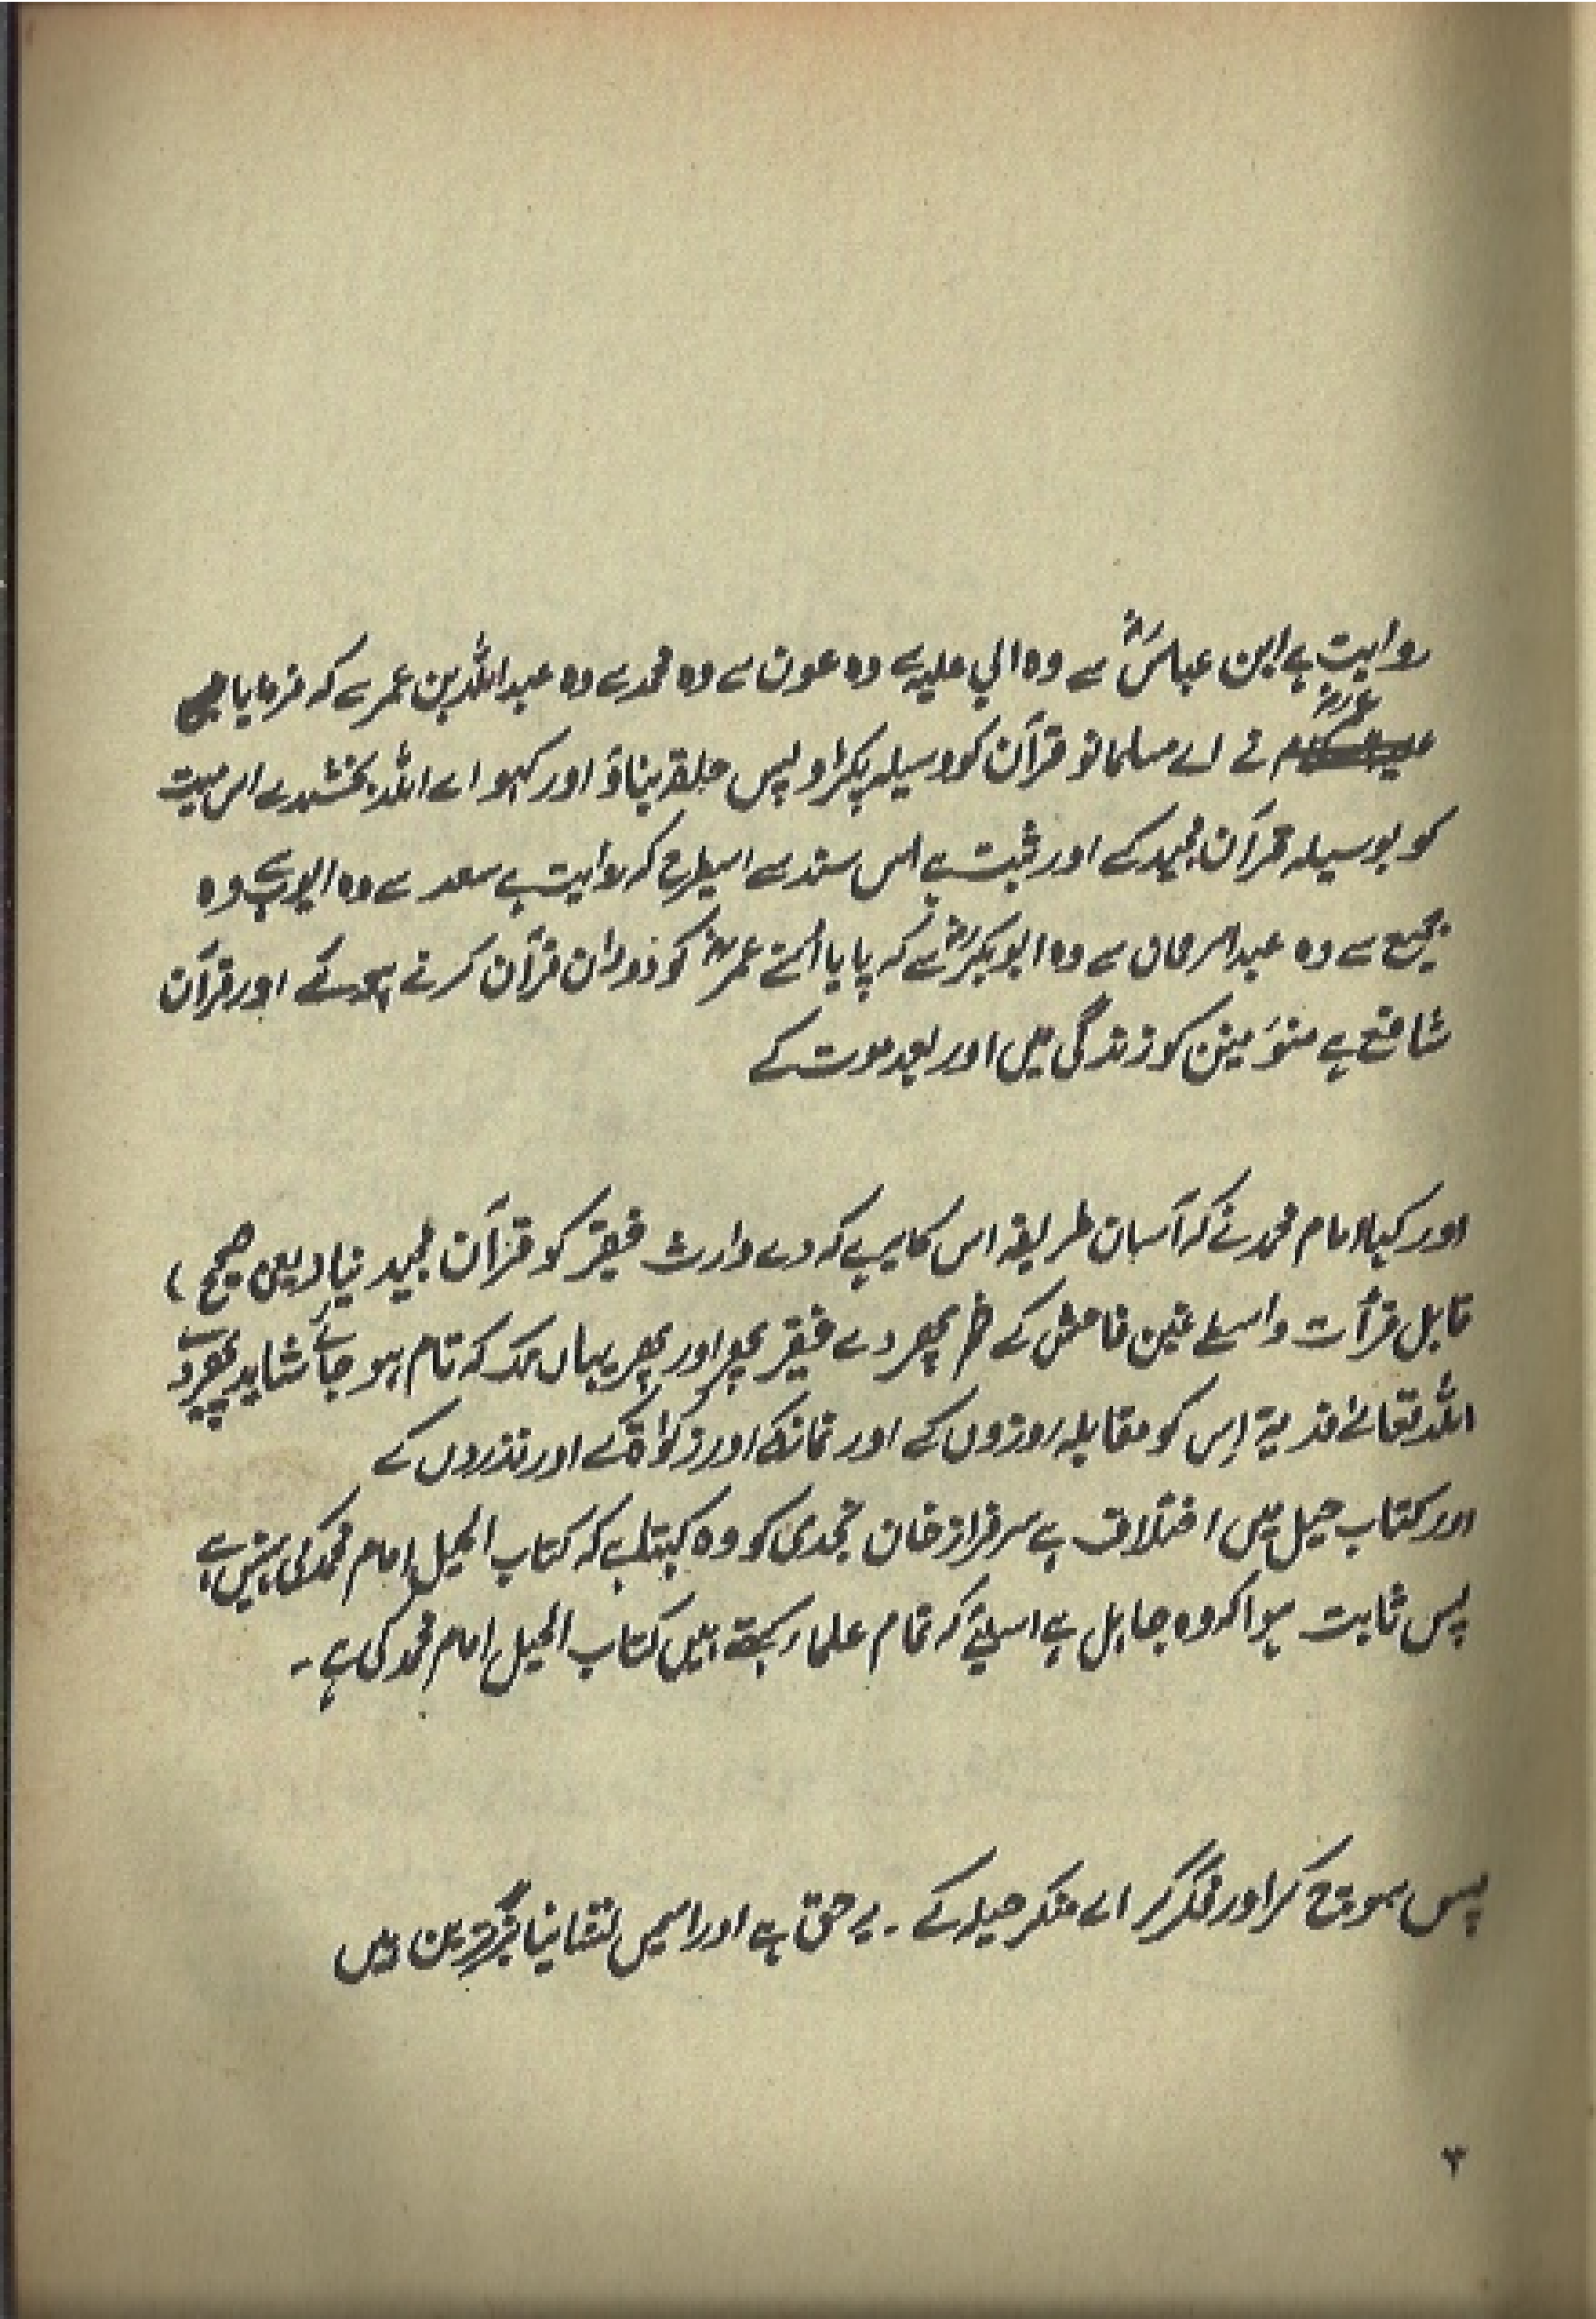 روایت ہے ابن عباسؓ سے وہ ابی علیہ سے وہ عون سے وہ محمد سے وہ عبداللہ بن عمر سے کہ فرمایا
عمرؓ نے اے مسلمانو قرآن کو وسیلہ پکڑو پس حلقہ بناؤ اور کہو اے اللہ بخشدے اس میت
کو بوسیلہ قرآن مجید کے اور ثبت ہے اس سند سے اسیطرح کہ روایت ہے سعد سے وہ ایوب سے وہ
جمیع سے وہ عبدالرحمان سے وہ ابوبکرؓ سے کہ پایا اسنے عمرؓ کو دوران قرآن کرتے ہوئے اور قرآن
شافع ہے مؤمنین کو زندگی میں اور بعد موت کے
اور کہا امام محمد نے کہ آسان طریقہ اس کا یہ ہے کہ دے وارث فقیر کو قرآن مجید نیا (یعنی صحیح)
قابل قرأت واسطے غبن فاحش کے پھر دے فقیر پھر اور پھر یہاں تک کہ تمام ہو جائے شاید پھیر دے
اللہ تعالےٰ فدیۃ اس کو مقابلہ روزوں کے اور نمازکے اور زکوٰۃکے اور نذروں کے
اور کتاب حیل میں اختلاف ہے سرفراز خان نجدی کو وہ کہتا ہے کہ کتاب الحیل امام محمد کی نہیں ہے
پس ثابت ہوا کہ وہ جاہل ہے اسلیئے کہ تمام علماء کہتے ہیں کتاب الحیل امام محمد کی ہے ۔
پس سوچ کر اور فکر کر اے منکر حیلہ کے ۔ یہ حق ہے اور اسمیں
۳